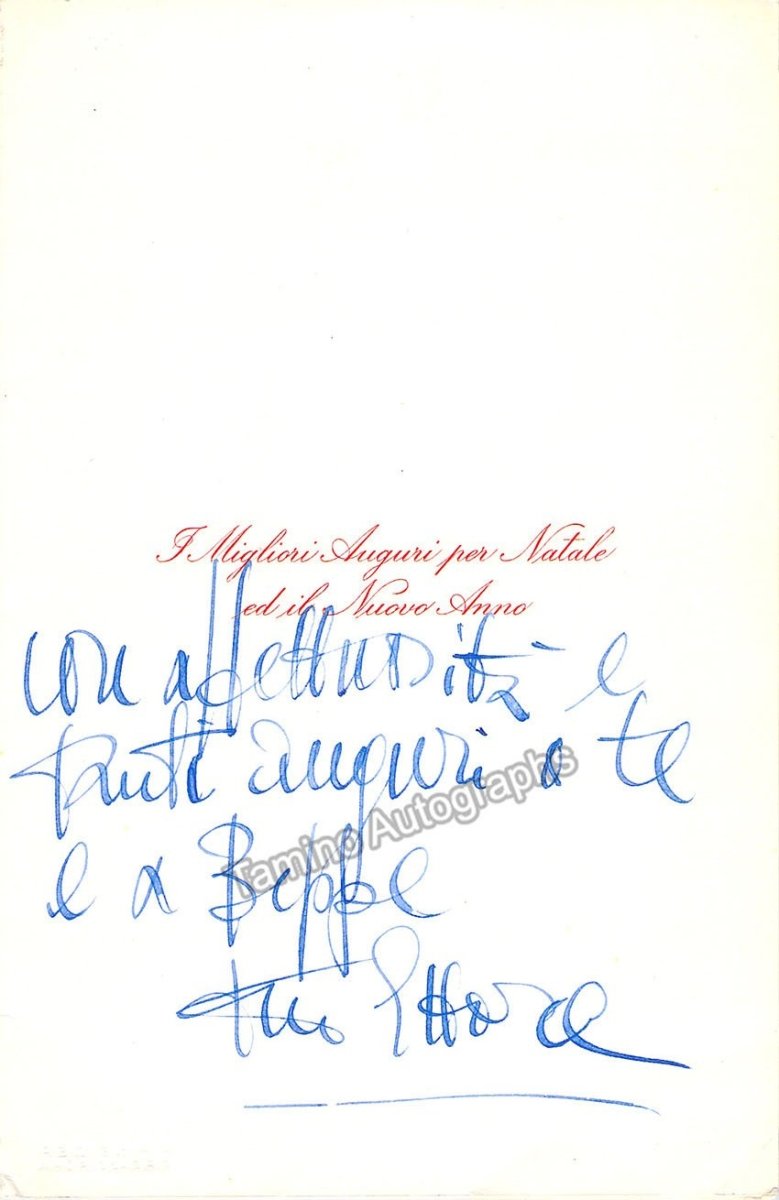 I Migliori Auguri per Natale
ed il Nuovo Anno
con affettuosità e
tanti auguri a te
e a Beppe
tuo Ettore
Tamino Autographs